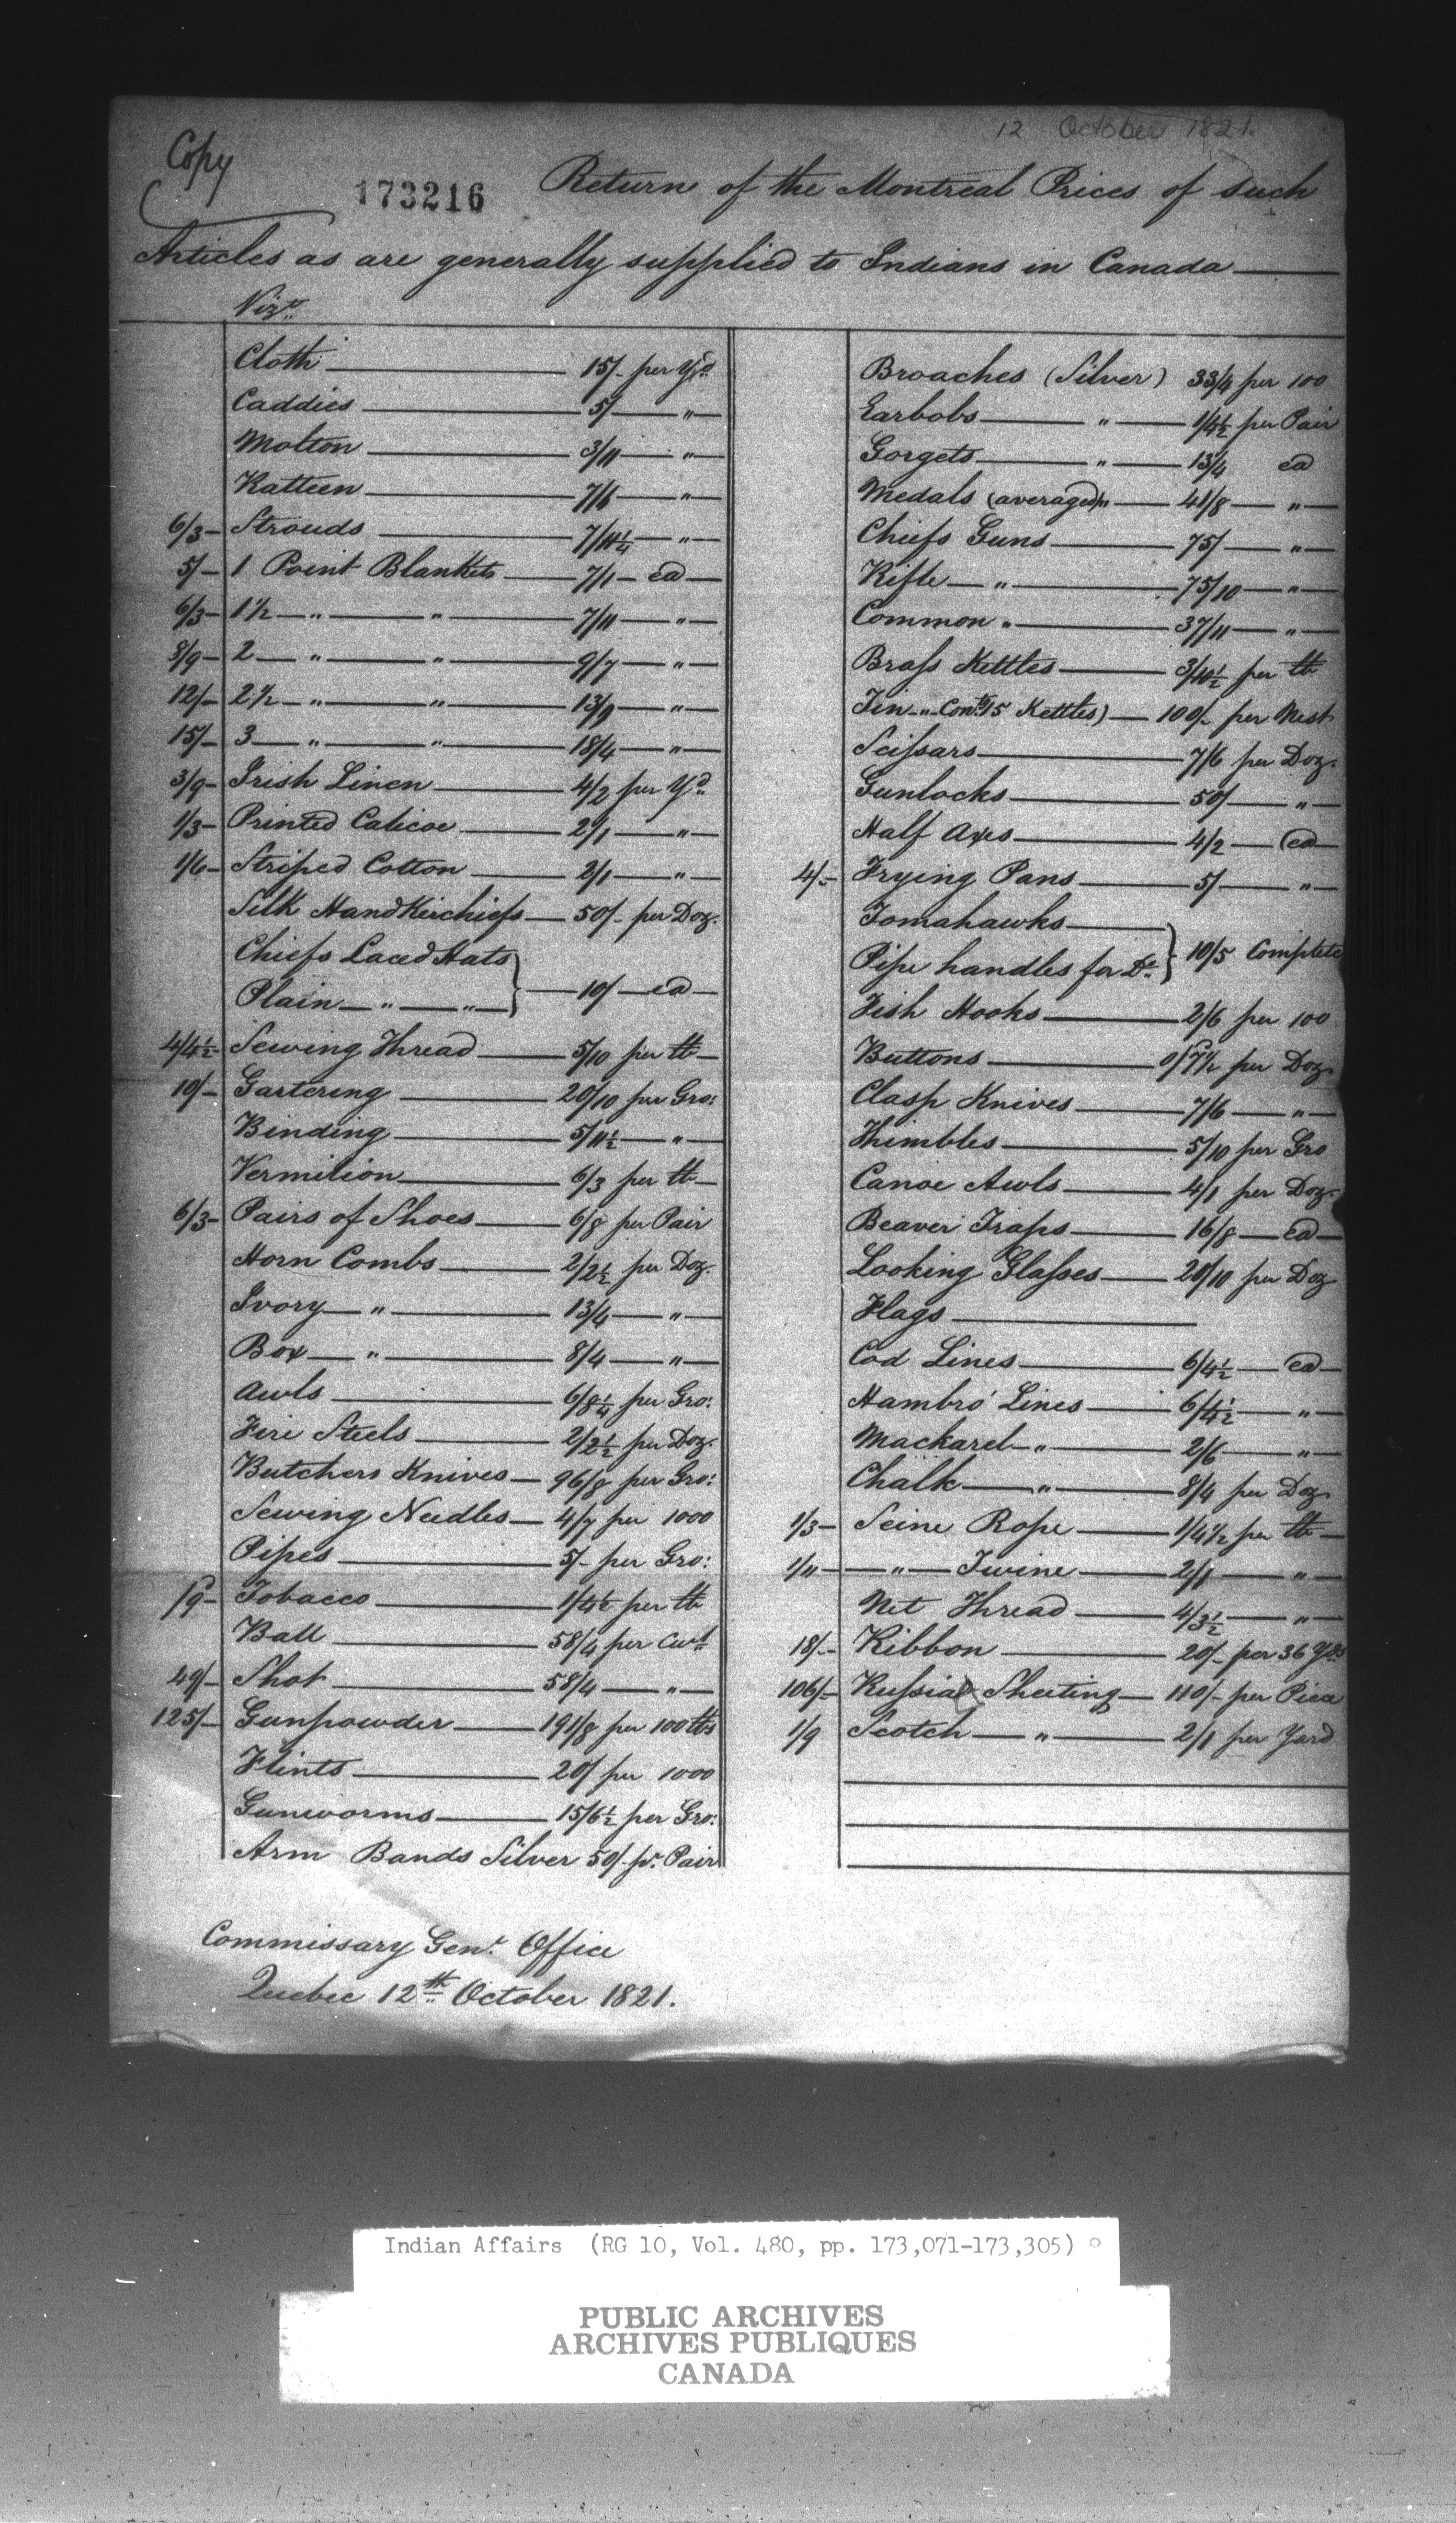 12 October 1821.
Copy
173216 Return of the Montreal Prices of such
Articles as are generally supplied to Indians in Canada
Vizt.
Cloth 15/- per Yd
Caddies 5/ "
Molton 3/11 "
Katteen 7/6 "
6/3 Strouds 7/11 1/4 "
5/- 1 Point Blankets 7/1 ea
6/3 1 1/2 " " 7/11 "
8/9 2 " " 9/7 "
12/- 2 1/2 " " 13/9 "
15/- 3 " " 18/4 "
3/9 Irish Linen 4/2 per Yd
1/3 Printed Calicoe 2/1 "
1/6 Striped Cotton 2/1 "
Silk HandKerchiefs 50/- per Doz.
Chiefs Laced Hats
Plain " " } 10/ ea
4/4 1/2 Sewing Thread 5/10 per lb
10/- Gartering 20/10 per Gro:
Binding 5/11 1/2 "
Vermilion 6/3 per lb
6/3 Pairs of Shoes 6/8 per Pair
Horn Combs 2/2 1/2 per Doz.
Ivory " 13/4 "
Box " 8/4 "
Awls 6/8 1/4 per Gro:
Fire Steels 2/2 1/2 per Doz.
Butchers Knives 96/8 per Gro:
Sewing Needles 4/7 per 1000
Pipes 5/- per Gro:
/9 Tobacco 1/4 1/2 per lb
Ball 58/4 per Cwt
49/- Shot 58/4 "
125/- Gunpowder 191/8 per 100 lbs
Flints 20/ per 1000
Gunworms 15/6 1/2 per Gro:
Arm Bands Silver 50/- pr. Pair
Broaches (Silver) 33/4 per 100
Earbobs " 1/4 1/2 per Pair
Gorgets " 13/4 ea
Medals (averaged) " 41/8 "
Chiefs Guns 75/ "
Rifle " 75/10 "
Common " 37/11 "
Brass Kettles 3/10 1/2 per lb
Tin " Contg 15 Kettles) 100/- per Nest
Scissars 7/6 per Doz.
Gunlocks 50/ "
Half Axes 4/2 ea
4/- Frying Pans 5/ "
Tomahawks
Pipe handles for Do. } 10/5 Complete
Fish Hooks 2/6 per 100
Buttons 0/7 1/2 per Doz.
Clasp Knives 7/6 "
Thimbles 5/10 per Gro
Canoe Awls 4/1 per Doz.
Beaver Traps 16/8 ea
Looking Glasses 20/10 per Doz
Flags
Cod Lines 6/4 1/2 ea
Hambro' Lines 6/4 1/2 "
Mackarel " 2/6 "
Chalk " 8/4 per Doz
1/3 Seine Rope 1/4 1/2 per lb
1/11 " Twine 2/1 "
Net Thread 4/3 1/2 "
18/- Ribbon 20/- per 36 Yds
106/- Russia Sheeting 110/- per Piece
1/9 Scotch " 2/1 per Yard
Commissary Genl. Office
Quebec 12th October 1821.
Indian Affairs (RG 10, Vol. 480, pp. 173,071-173,305)
PUBLIC ARCHIVES
ARCHIVES PUBLIQUES
CANADA